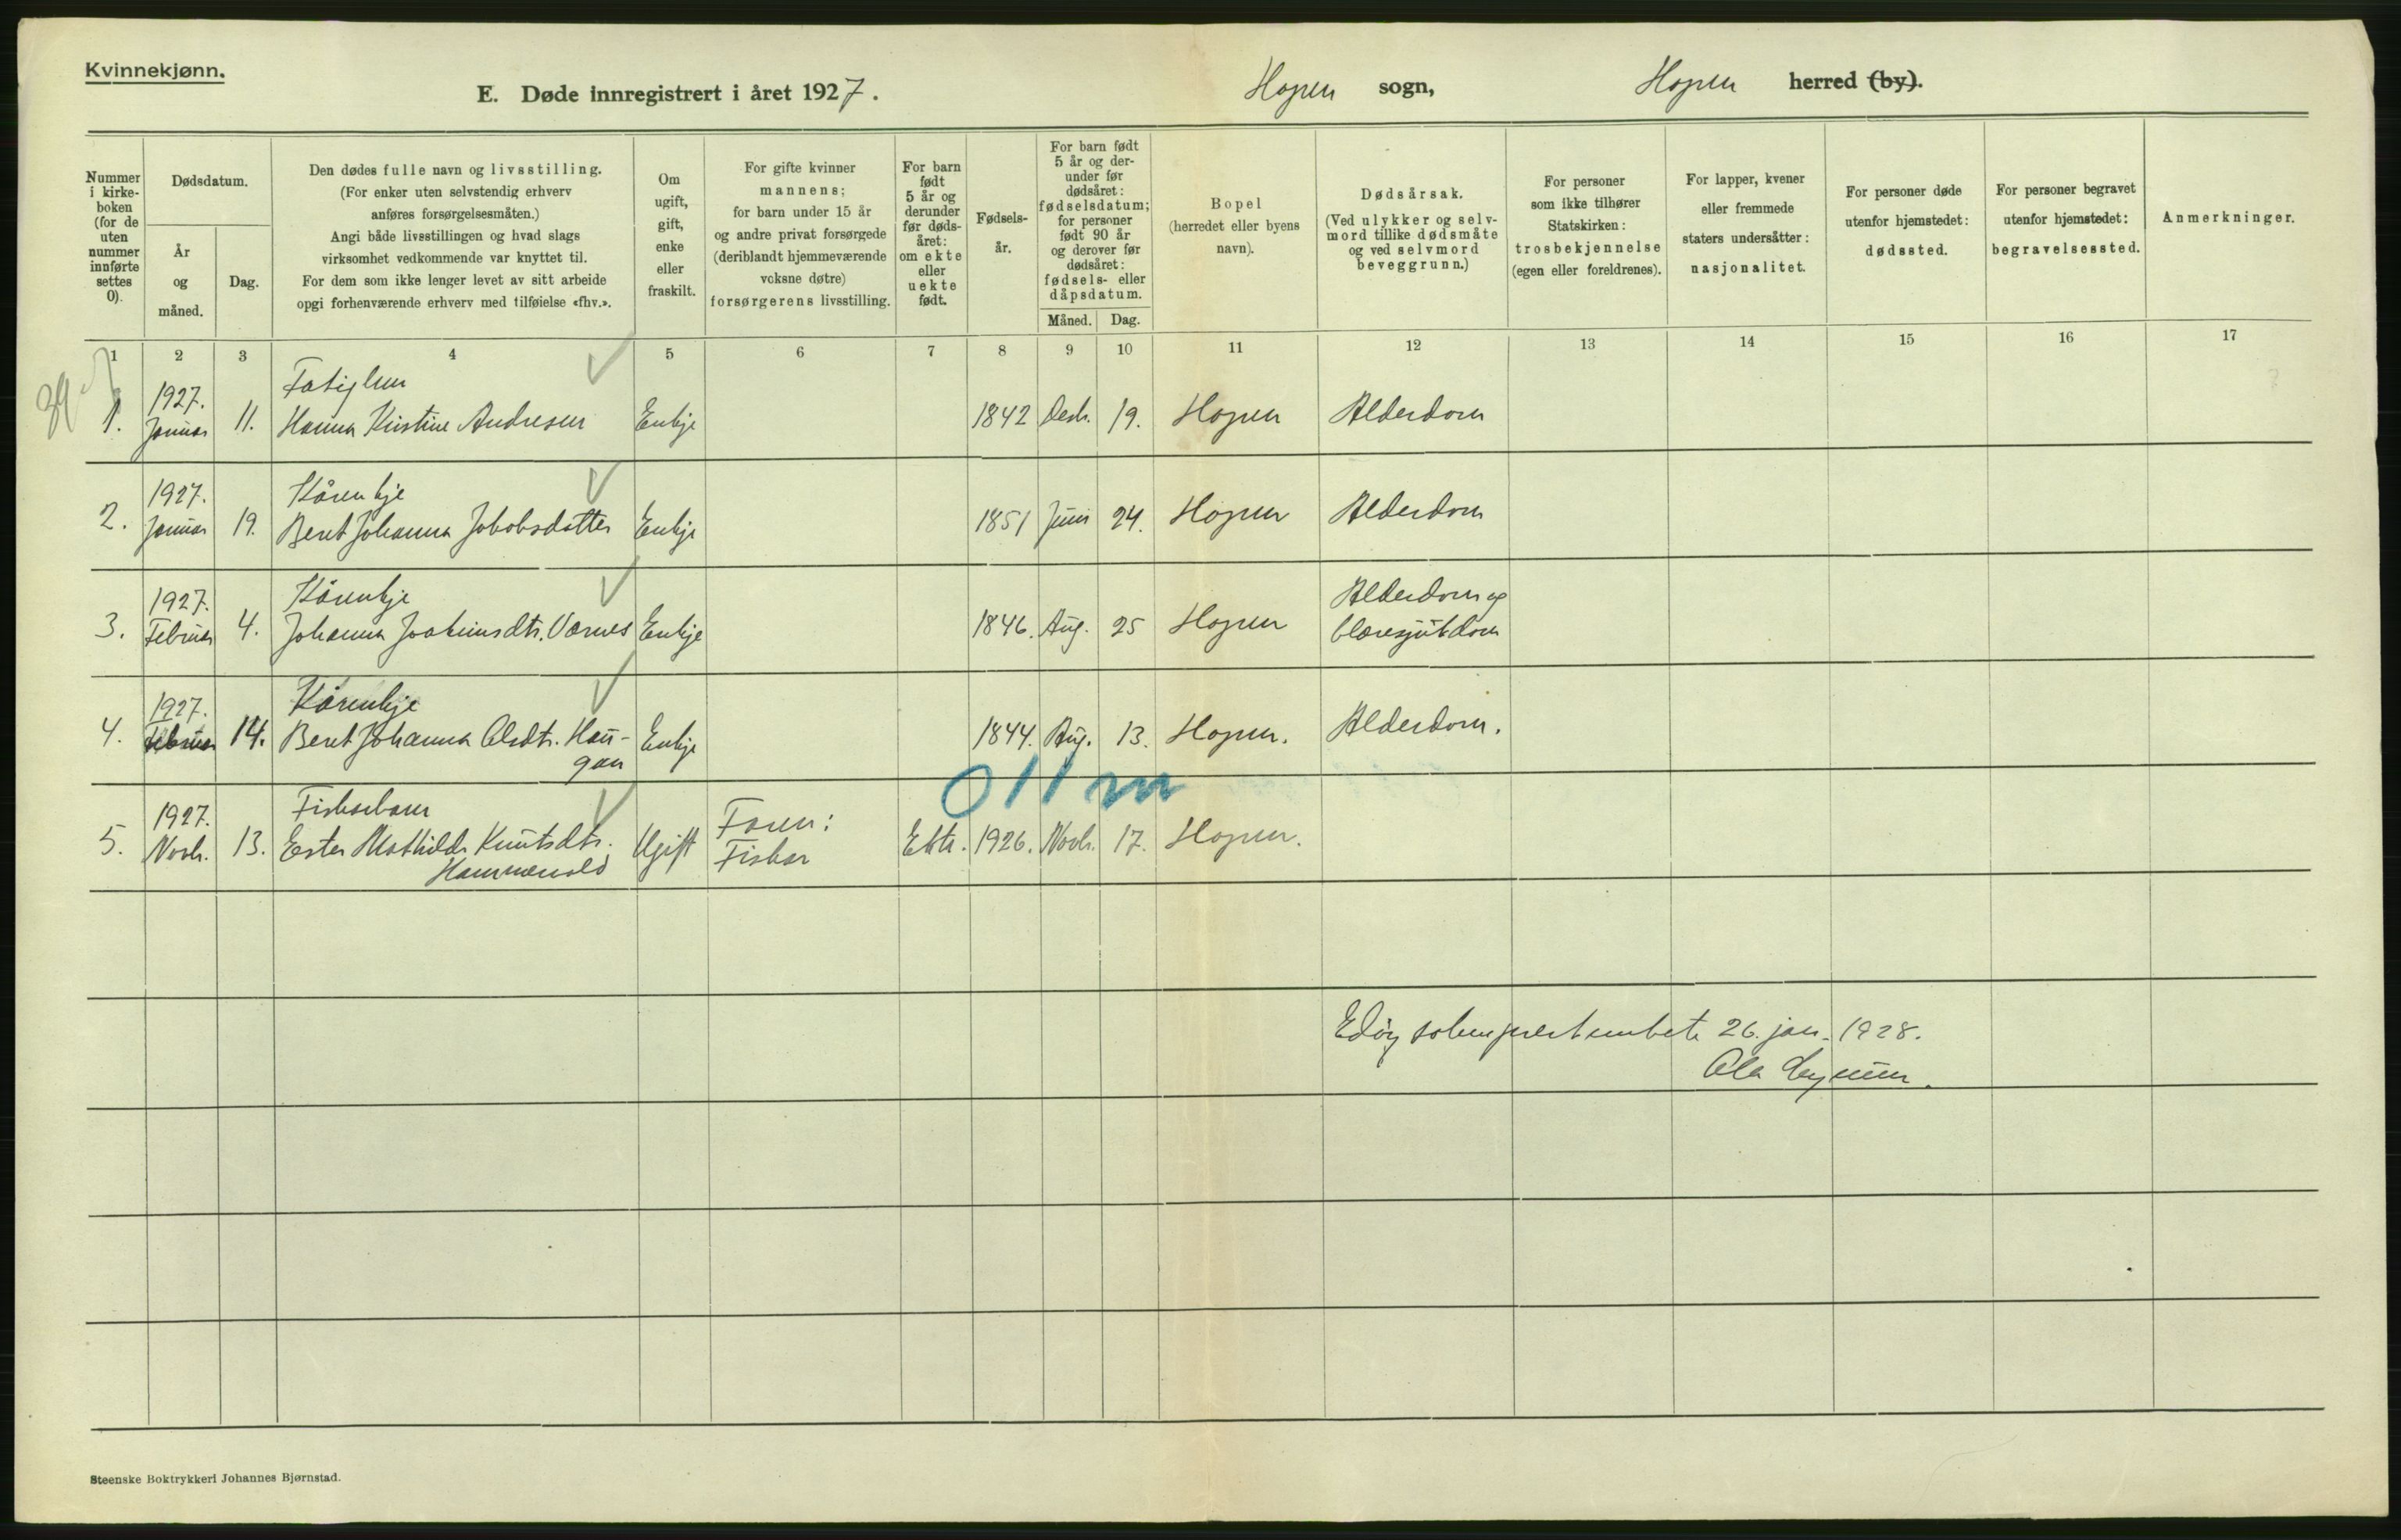 Kvinnekjønn.
E. Døde innregistrert i året 1927.
Hopen sogn,
Hopen herred (by).
Nummer
i kirke-
boken
(for de
uten
nummer
innførte
settes
0).
Dødsdatum.
År
og
måned.
Dag.
Den dødes fulle navn og livsstilling.
(For enker uten selvstendig erhverv
anføres forsørgelsesmåten.)
Angi både livsstillingen og hvad slags
virksomhet vedkommende var knyttet til.
For dem som ikke lenger levet av sitt arbeide
opgi forhenværende erhverv med tilføielse «fhv.».
Om
ugift,
gift,
enke
eller
fraskilt.
For gifte kvinner
mannens;
for barn under 15 år
og andre privat forsørgede
(deriblandt hjemmeværende
voksne døtre)
forsørgerens livsstilling.
For barn
født
5 år og
derunder
før døds-
året:
om ekte
eller
uekte
født.
Fødsels-
år.
For barn født
5 år og der-
under før
dødsåret:
fødselsdatum;
for personer
født 90 år
og derover før
dødsåret:
fødsels- eller
dåpsdatum.
Måned. Dag.
Bopel
(herredet eller byens
navn).
Dødsårsak.
(Ved ulykker og selv-
mord tillike dødsmåte
og ved selvmord
beveggrunn.)
For personer
som ikke tilhører
Statskirken:
trosbekjennelse
(egen eller foreldrenes).
For lapper, kvener
eller fremmede
staters undersåtter:
nasjonalitet.
For personer døde
utenfor hjemstedet:
dødssted.
For personer begravet
utenfor hjemstedet:
begravelsessted.
Anmerkninger.
1 2 3 4 5 6 7 8 9 10 11 12 13 14 15 16 17
1927. Fatiglem
1. Januar 11. Hanna Kristine Andresen Enkje 1842 Desb. 19. Hopen Alderdom
1927. Kårenkje
2. Januar 19. Beret Johanna Jakobsdatter Enkje 1851 Juni 24. Hopen Alderdom
1927. Kårenkje Alderdom og
3. Februar 4. Johanna Joakimsdtr. Varnes Enkje 1846. Aug. 25 Hopen blæresjukdom
1927. Kårenkje
4. Februar 14. Beret Johanna Olsdtr. Hau- Enkje 1844. Aug. 13. Hopen. Alderdom.
gan
011 m
1927. Fiskarbarn Faren:
5. Novb. 13. Ester Mathilde Knutsdtr. Ugift Fiskar Ekte. 1926. Novb. 17. Hopen.
Hammervold
Edøy sokneprestembete 26. jan. 1928.
Ola
Steenske Boktrykkeri Johannes Bjørnstad.